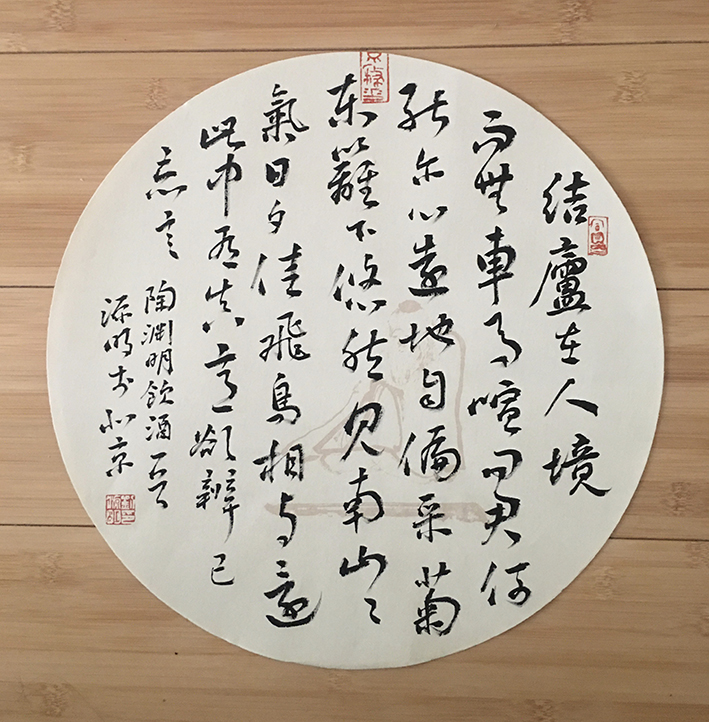 結廬在人境
而無車馬喧問君何
能尔心遠地自偏采菊
東籬下悠然見南山〻
氣日夕佳飛鳥相與還
此中有真意欲辨已
忘言
陶淵明飲酒一首
源明於北京